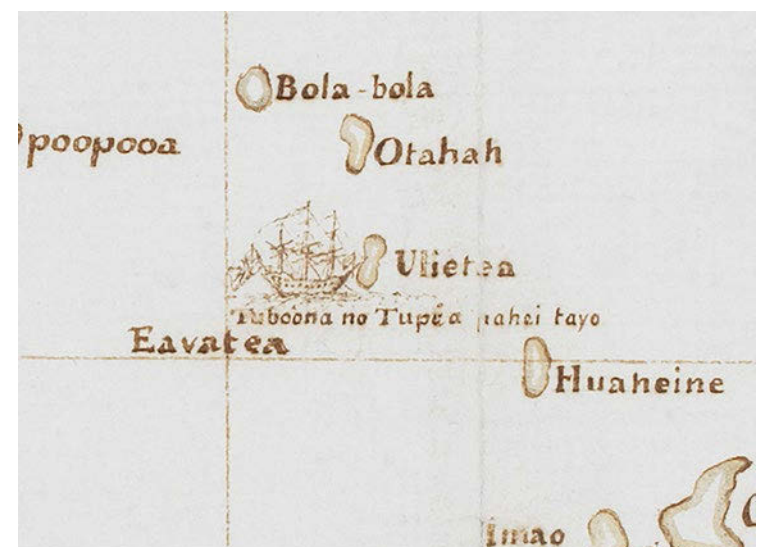 Bola-bola
poopooa
Otahah
Ulietea
Tuboona no Tupia pahei tayo
Eavatea
Huaheine
Imao